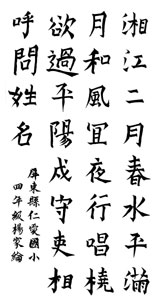 湘江二月春水平滿
月和風宜夜行唱橈
欲過平陽戍守吏相
呼問姓名
屏東縣仁愛國小
四年級楊家綸